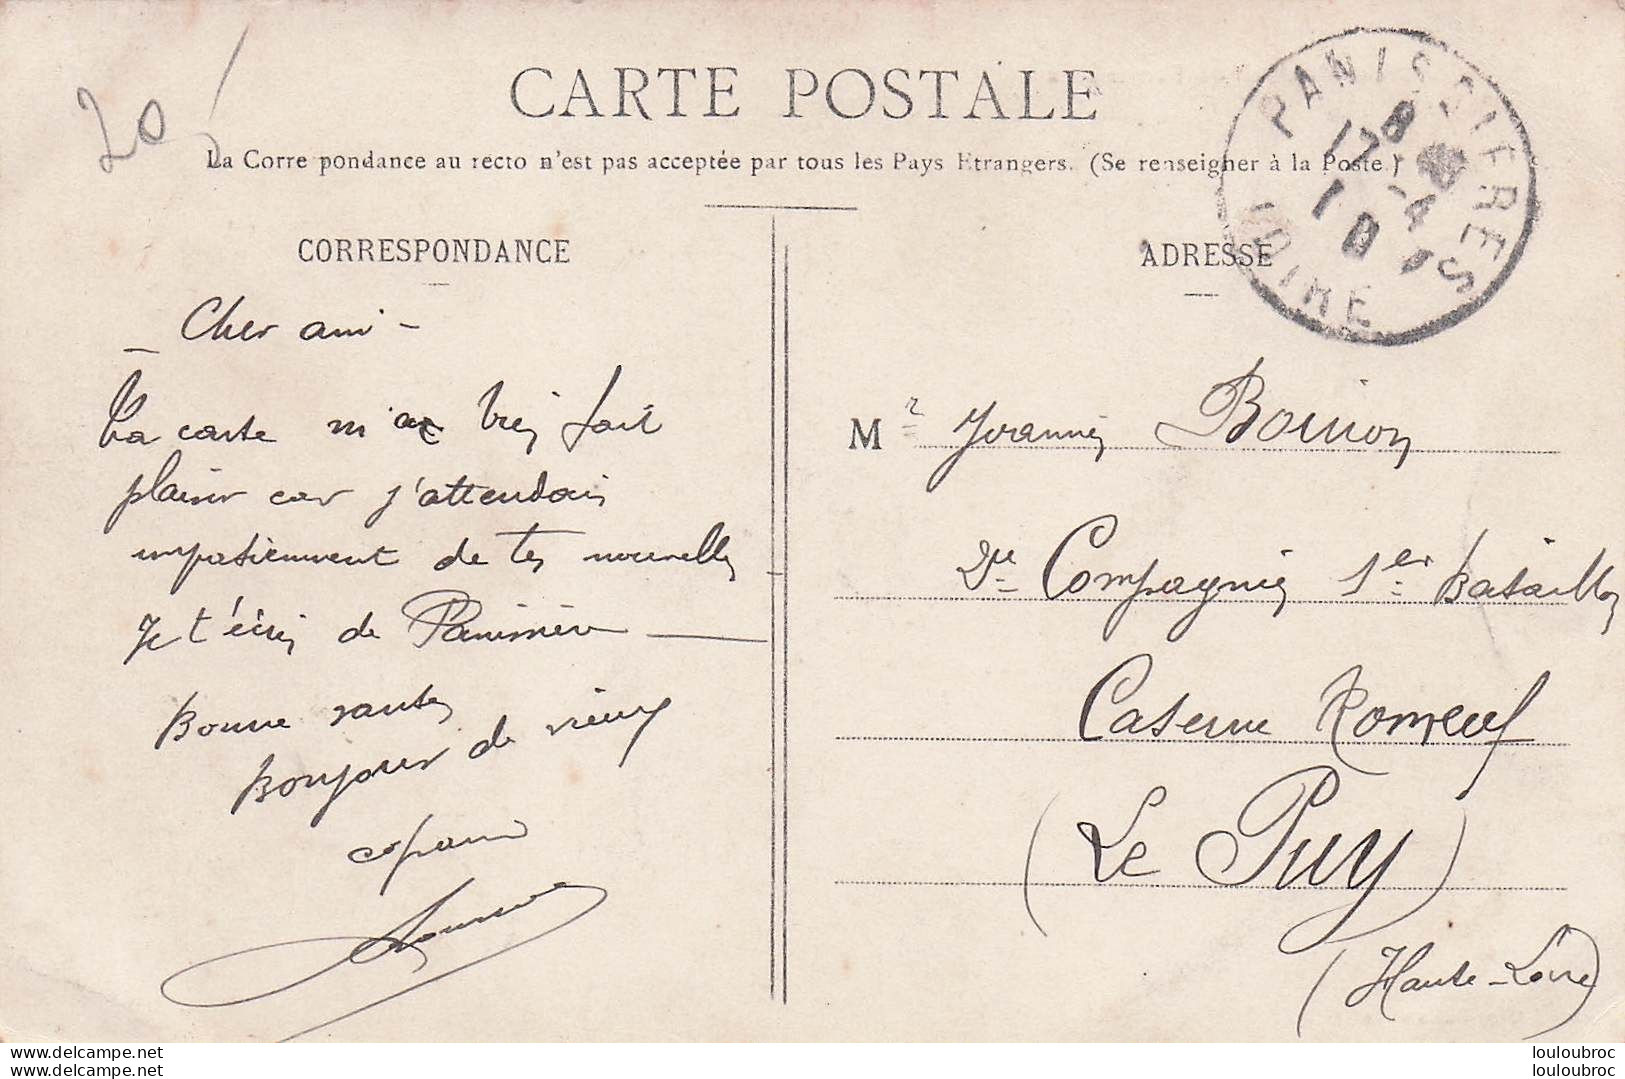 20
CARTE POSTALE
La Corre pondance au recto n'est pas acceptée par tous les Pays Etrangers. (Se renseigner à la Poste.)
PANISSIERES
8
17 - 4
10
LOIRE
CORRESPONDANCE
Cher ami -
Ta carte m'a bien fait
plaisir car j'attendais
impatiemment de tes nouvelles
Je t'écris de Panissière
Bonne santé
Bonjour de vieux
copain
ADRESSE
Mr Joannès
Compagnie 1er Bataillon
Caserne Romeuf
(Le Puy)
(Haute-Loire)
www.delcampe.net
www.delcampe.net
louloubroc
louloubroc